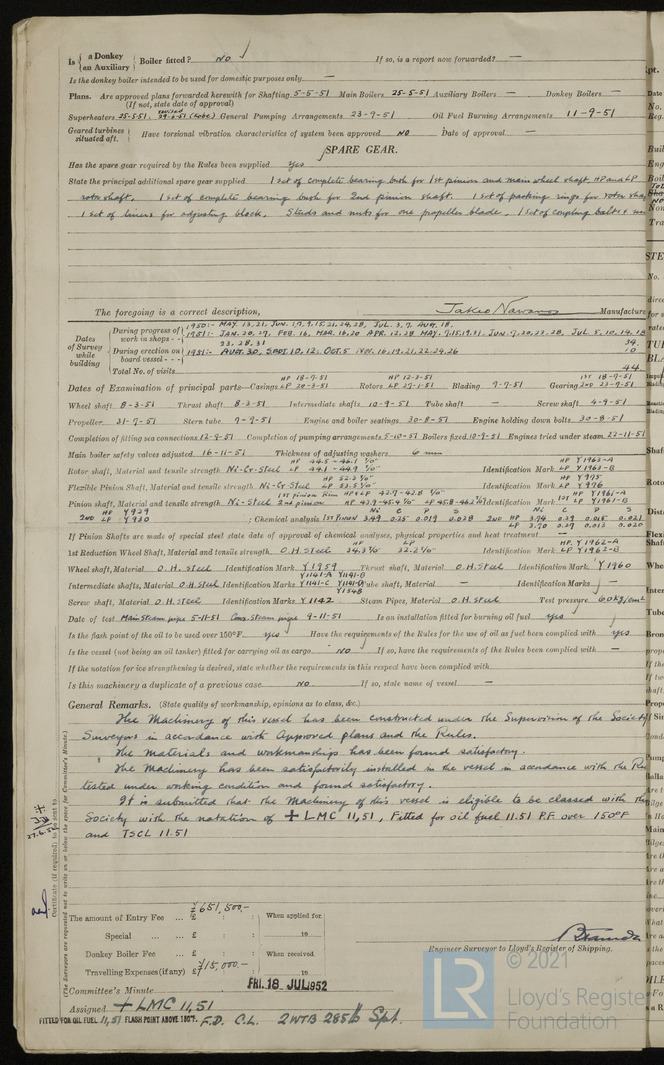 Is { a Donkey / an Auxiliary } Boiler fitted? NO If so, is a report now forwarded? —
Is the donkey boiler intended to be used for domestic purposes only —
Plans. Are approved plans forwarded herewith for Shafting 5-5-51 Main Boilers 25-5-51 Auxiliary Boilers — Donkey Boilers —
(If not, state date of approval)
Superheaters 25-5-51 General Pumping Arrangements 23-9-51 Oil Fuel Burning Arrangements 11-9-51
Geared turbines situated aft. } Have torsional vibration characteristics of system been approved NO Date of approval —
SPARE GEAR.
Has the spare gear required by the Rules been supplied yes
State the principal additional spare gear supplied 1 set of complete bearing bush for 1st pinion and main wheel shaft, HP and LP
rotor shaft, 1 set of complete bearing bush for 2nd pinion shaft. 1 set of packing rings for rotor
1 set of liners for adjusting block, Studs and nuts for one propeller blade, 1 set of coupling bolts &
The foregoing is a correct description, Manufacture
Dates of Survey while building
During progress of work in shops - - { 1950:- MAY. 13, 21, JUN. 1, 7, 9, 15, 21, 24, 28, JUL. 3, 7, AUG. 18,
1951:- JAN. 20, 27, FEB. 16, MAR. 16, 20 APR. 12, 28 MAY. 7, 15, 19, 31, JUN. 7, 20, 22, 28, JUL. 5, 10, 14, 18
23, 28, 31 34
During erection on board vessel - - - { 1951:- AUG. 30, SEPT. 10, 12, OCT. 5 NOV. 16, 19, 21, 22, 24, 26 10
Total No. of visits 44
Dates of Examination of principal parts—Casings HP 18-7-51 LP 20-3-51 Rotors HP 12-3-51 LP 27-1-51 Blading 7-7-51 Gearing 1st 18-7-51 2nd 23-7-51
Wheel shaft 8-3-51 Thrust shaft 8-3-51 Intermediate shafts 10-9-51 Tube shaft — Screw shaft 4-9-51
Propeller 31-7-51 Stern tube 7-7-51 Engine and boiler seatings 30-8-51 Engine holding down bolts 30-8-51
Completion of fitting sea connections 12-9-51 Completion of pumping arrangements 5-10-51 Boilers fixed 10-9-51 Engines tried under steam 22-11-51
Main boiler safety valves adjusted 16-11-51 Thickness of adjusting washers 6 mm
Rotor shaft, Material and tensile strength Ni-Cr-Steel HP 44.5-46.1 T/□" LP 44.1-44.9 T/□" Identification Mark HP Y1963-A LP Y1963-B
Flexible Pinion Shaft, Material and tensile strength Ni-Cr Steel HP 52.2 T/□" LP 53.5 T/□" Identification Mark HP Y975 LP Y976
Pinion shaft, Material and tensile strength Ni-Steel 1st pinion Rim HP & LP 42.9-42.8 T/□" 2nd pinion HP 43.9-45.4 T/□" LP 45.8-46.2 T/□" Identification Mark 1st HP Y1961-A LP Y1961-B
2ND HP Y929 LP Y930 : Chemical analysis Ni C P S 1ST PINION 3.49 0.25 0.019 0.028 2ND HP 3.74 0.29 0.015 0.021 LP 3.70 0.29 0.013 0.020
If Pinion Shafts are made of special steel state date of approval of chemical analyses, physical properties and heat treatment —
1st Reduction Wheel Shaft, Material and tensile strength O.H. Steel HP 34.3 T/□" LP 33.2 T/□" Identification Mark HP Y1962-A LP Y1962-B
Wheel shaft, Material O.H. Steel Identification Mark Y1959 Thrust shaft, Material O.H. Steel Identification Mark. Y1960
Intermediate shafts, Material O.H Steel Identification Marks Y1141-A Y1141-B Y1141-C Y1141-D Y1548 Tube shaft, Material — Identification Marks —
Screw shaft, Material O.H. Steel Identification Marks Y1142 Steam Pipes, Material O.H. Steel Test pressure 60 kg/cm²
Date of test Main Steam pipe 5-11-51 9-11-51 Is an installation fitted for burning oil fuel yes
Is the flash point of the oil to be used over 150°F. yes Have the requirements of the Rules for the use of oil as fuel been complied with yes
Is the vessel (not being an oil tanker) fitted for carrying oil as cargo NO If so, have the requirements of the Rules been complied with —
If the notation for ice strengthening is desired, state whether the requirements in this respect have been complied with
Is this machinery a duplicate of a previous case NO If so, state name of vessel —
General Remarks. (State quality of workmanship, opinions as to class, &c.)
The Machinery of this vessel has been constructed under the Supervision of the Society
Surveyors in accordance with Approved plans and the Rules.
The materials and workmanships has been found satisfactory.
The Machinery has been satisfactorily installed in the vessel in accordance with the
tested under working condition and found satisfactory.
It is submitted that the Machinery of this vessel is eligible to be classed with the
Society with the notation of ✠ LMC 11,51, Fitted for oil fuel 11.51 P.F. over 150°F
and TSCL 11.51
Certificate (if required) to be sent to
(The Surveyors are requested not to write on or below the space for Committee's Minute.)
The amount of Entry Fee ... £ ¥651,500.— When applied for
Special ... £ : : 19
Donkey Boiler Fee ... £ : : When received
Travelling Expenses (if any) £ ¥15,000.— 19
Engineer Surveyor to Lloyd's Register of Shipping.
Committee's Minute FRI. 18 JUL 1952
Assigned ✠ LMC 11,51
FITTED FOR OIL FUEL 11,51 FLASH POINT ABOVE 150°F. F.D. C.L. 2WTB 285 lb Spt.
© 2021
LR
Lloyd's Register
Foundation